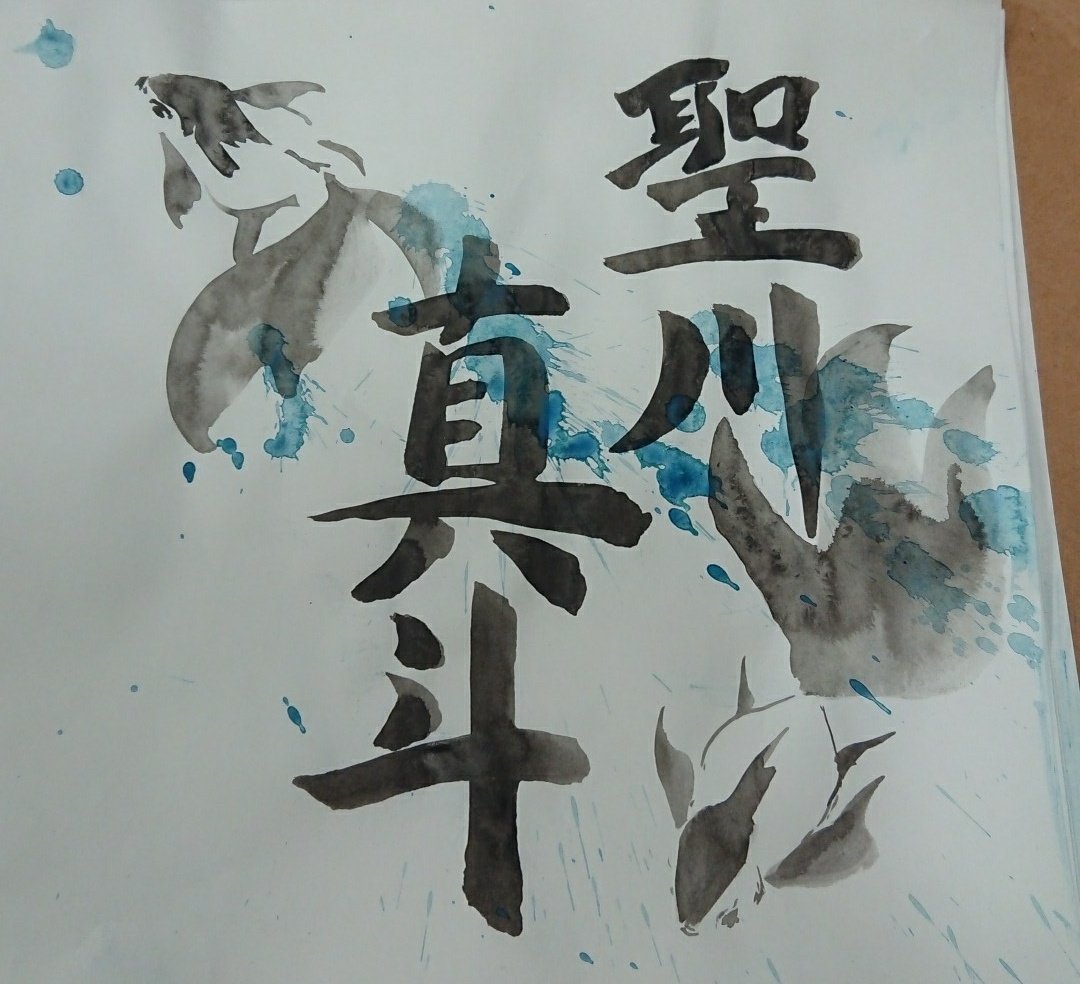 聖川
真斗